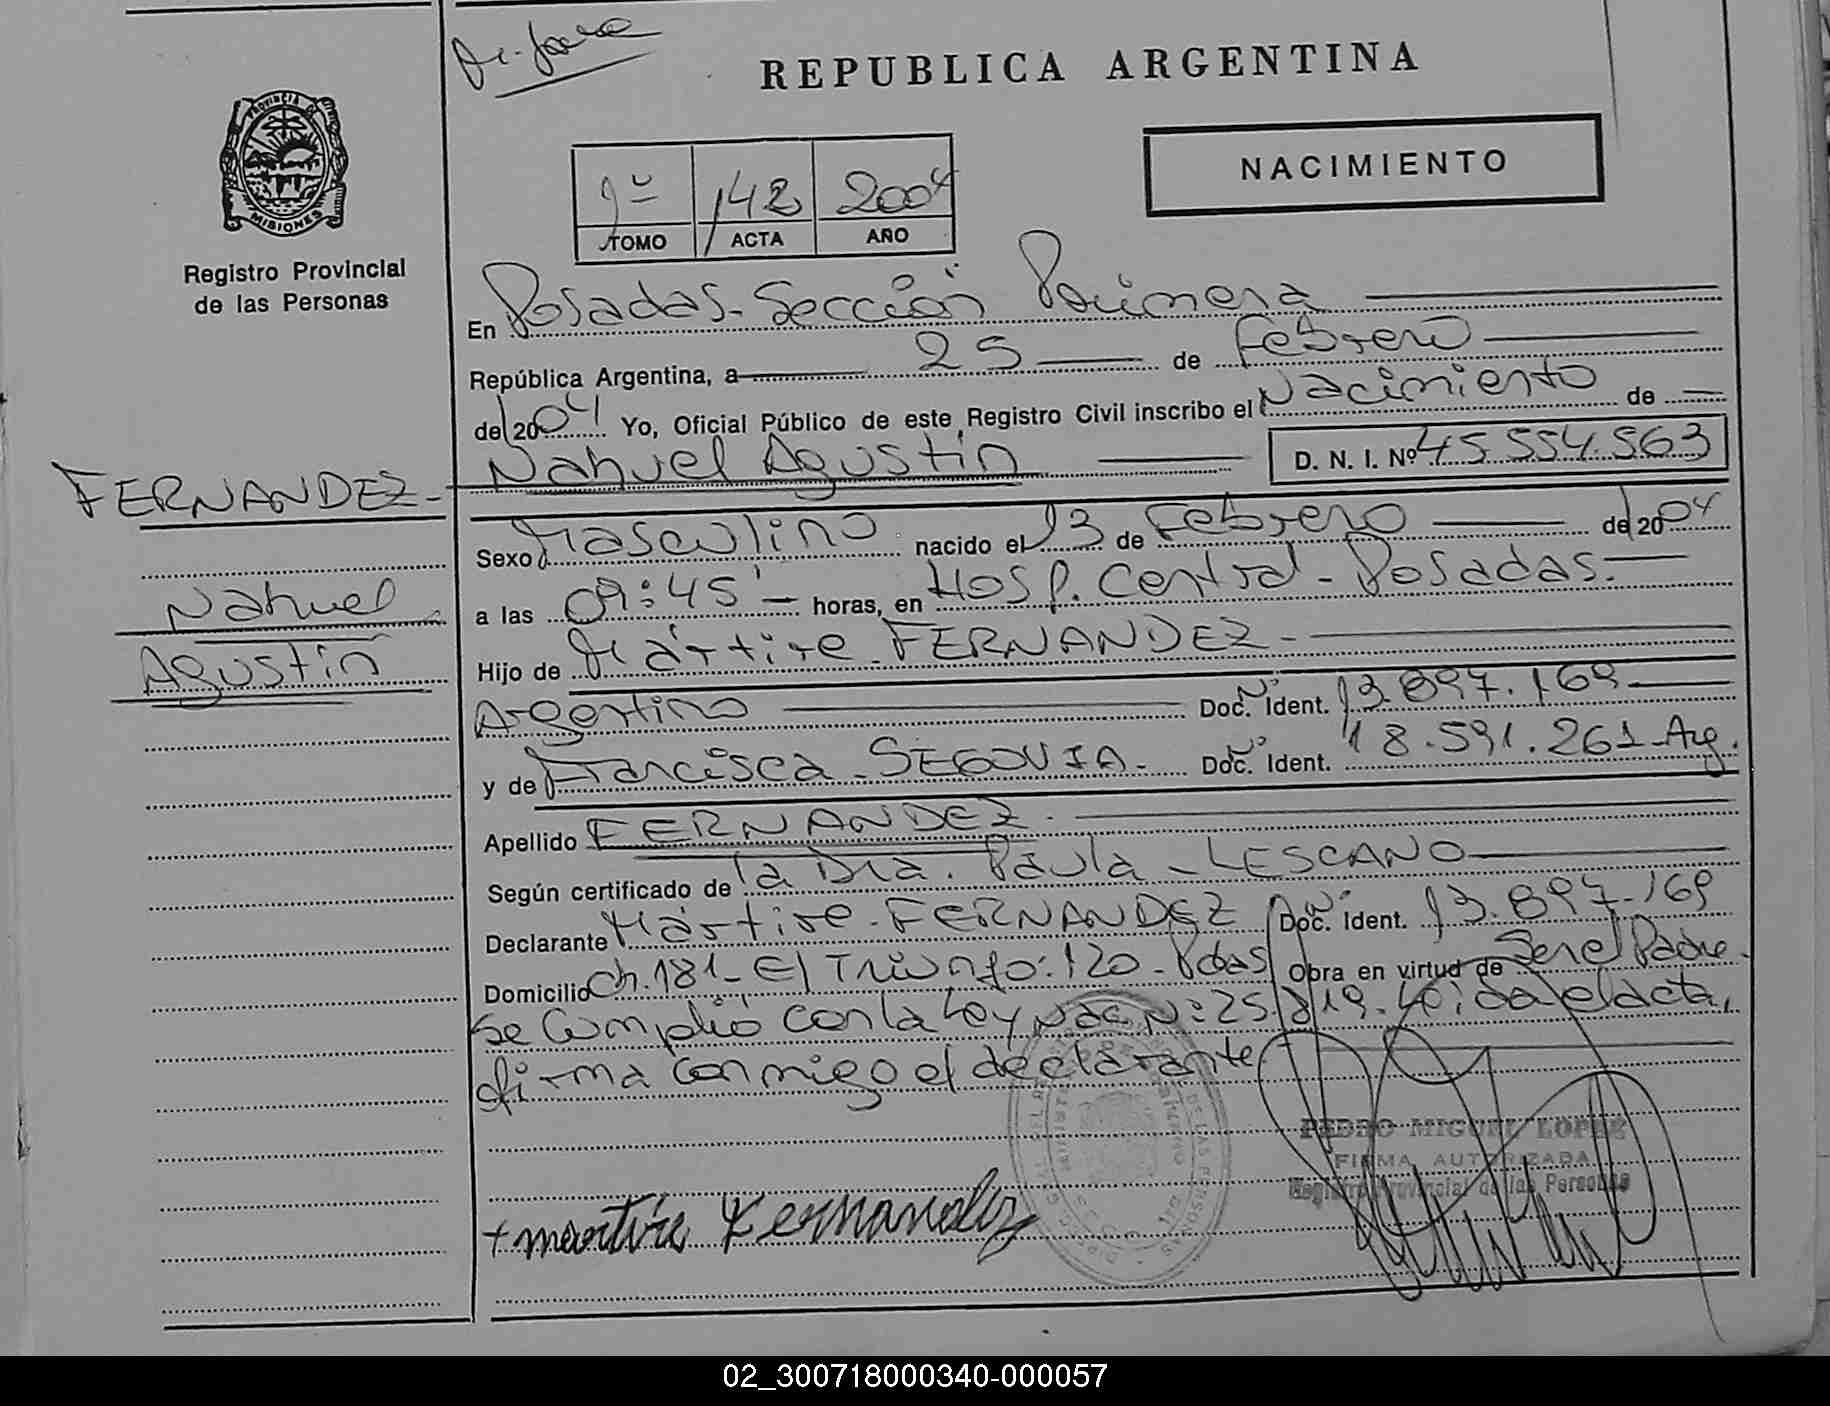 REPUBLICA ARGENTINA
PROVINCIA DE
MISIONES
Registro Provincial
de las Personas
NACIMIENTO
1º 142 2004
TOMO ACTA AÑO
En Posadas - Sección Primera
República Argentina, a 25 de Febrero
de 2004 Yo, Oficial Público de este Registro Civil inscribo el Nacimiento de
Nahuel Agustín D. N. I. Nº 45.554.563
FERNANDEZ -
Nahuel
Agustín
Sexo Masculino nacido el 13 de Febrero de 2004
a las 09:45' - horas, en Hosp. Central - Posadas. -
Hijo de Mártire - FERNANDEZ -
Argentino Doc. Nº Ident. 13.897.169
y de Francisca - SEGOVIA - Doc. Nº Ident. 18.591.261 - Arg.
Apellido FERNANDEZ -
Según certificado de la Dra. Paula - LESCANO
Declarante Mártire - FERNANDEZ Doc. Nº Ident. 13.897.169
Domicilio Ch. 181 - El Triunfo: 120 - Pdas Obra en virtud de Ser el Padre -
Se Cumplió con la Ley Nac. Nº: 25.819. Leída el acta,
firma conmigo el declarante
PEDRO MIGUEL LOPEZ
FIRMA AUTORIZADA
Registro Provincial de las Personas
+ martire Fernandez
02_300718000340-000057